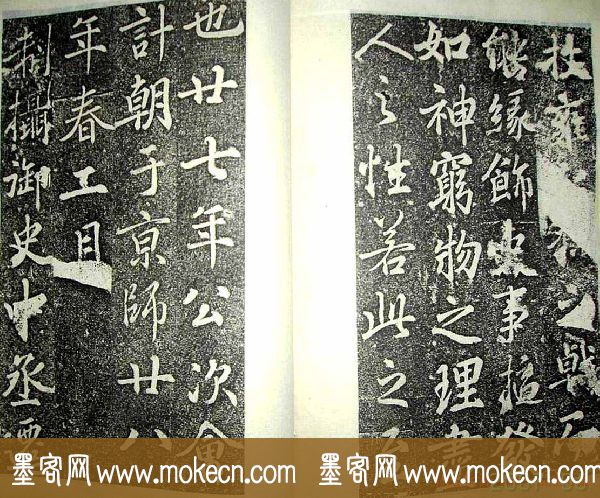 扶
能緣飾吏事擿發
如神窮物之理盡
人之性若此之
也廿七年公次會
計朝于京師廿八
年春正月
制攝御史中丞
墨客网 www.mokecn.com 墨客网 www.mokecn.com